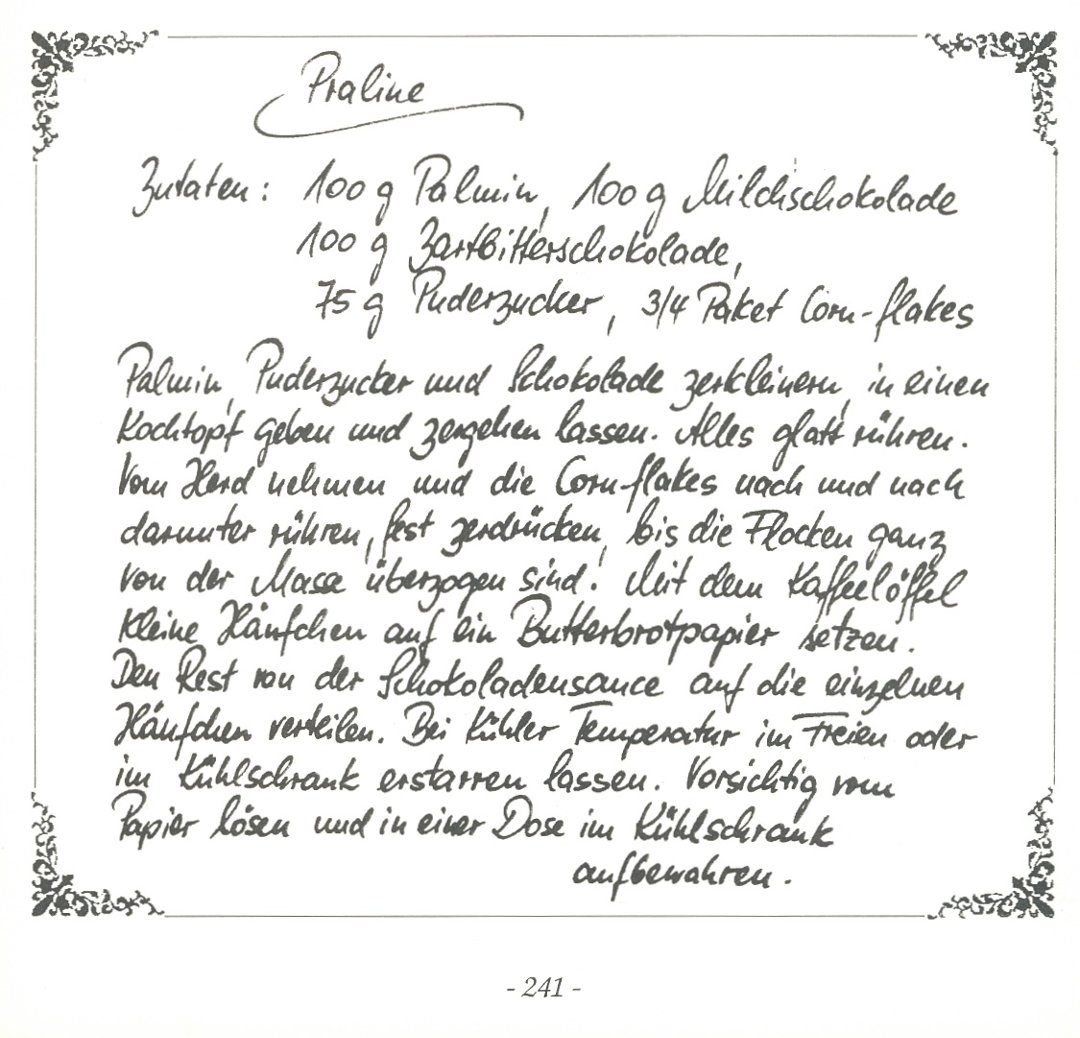 Praline
Zutaten: 100 g Palmin, 100 g Milchschokolade
100 g Zartbitterschokolade,
75 g Puderzucker, 3/4 Paket Corn-flakes
Palmin, Puderzucker und Schokolade zerkleinern, in einen
Kochtopf geben und zergehen lassen. Alles glatt rühren.
Vom Herd nehmen und die Corn-flakes nach und nach
darunter rühren, fest zerdrücken, bis die Flocken ganz
von der Masse überzogen sind! Mit dem Kaffeelöffel
kleine Häufchen auf ein Butterbrotpapier setzen.
Den Rest von der Schokoladensauce auf die einzelnen
Häufchen verteilen. Bei kühler Temperatur im Freien oder
im Kühlschrank erstarren lassen. Vorsichtig vom
Papier lösen und in einer Dose im Kühlschrank
aufbewahren.
- 241 -